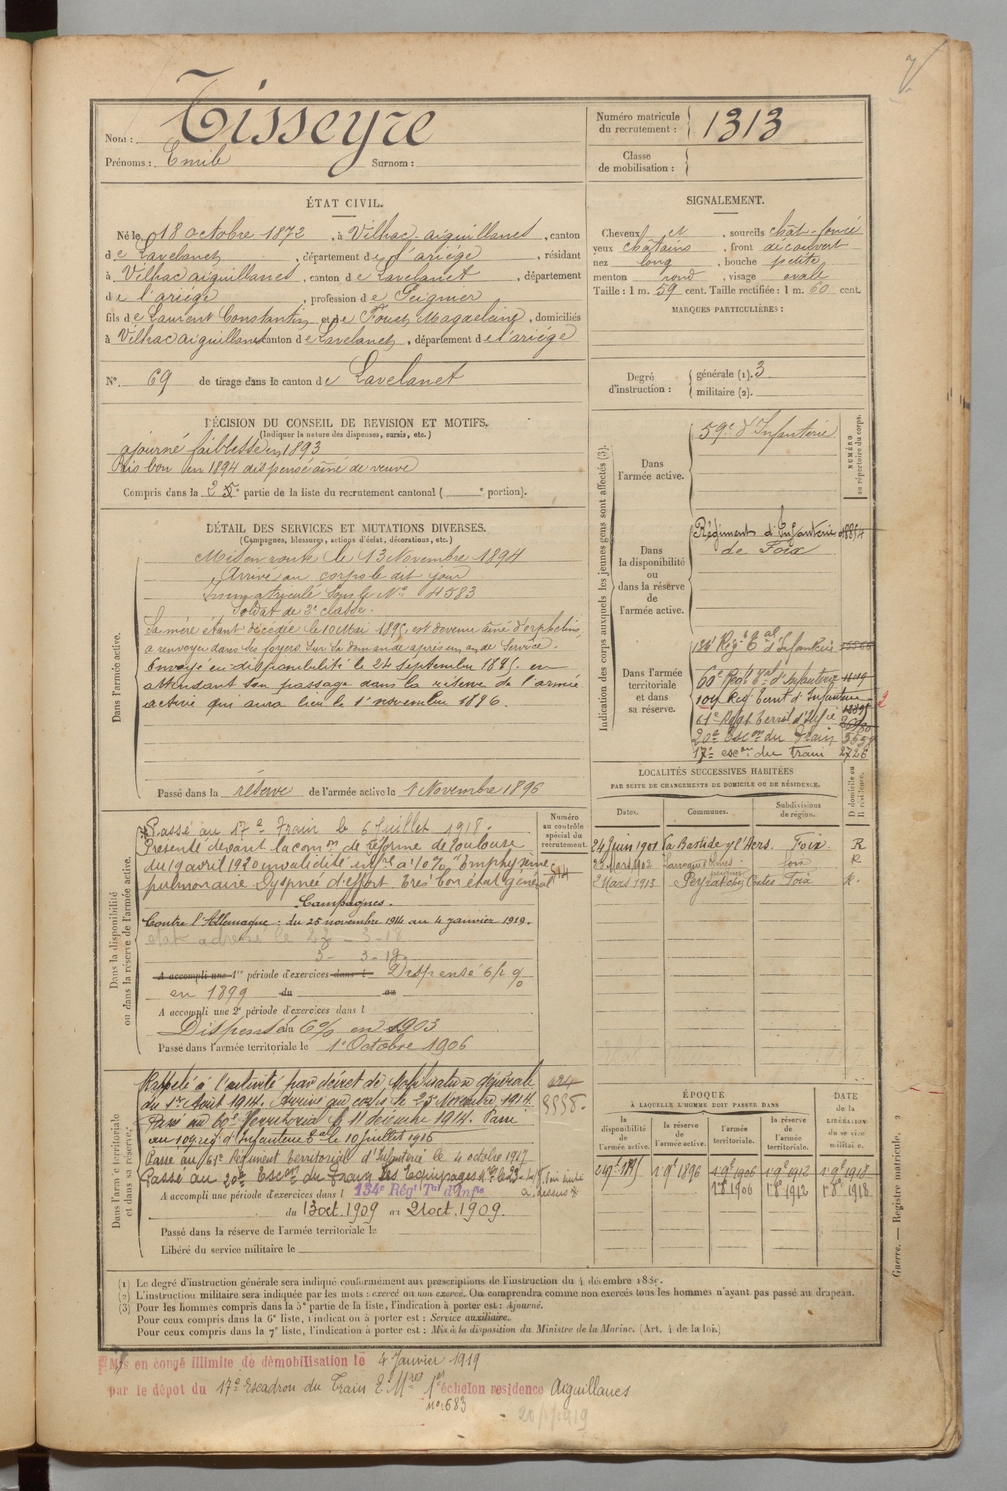 Nom : Tisseyre
Prénoms : Emile Surnom :
Numéro matricule du recrutement : 1313
Classe de mobilisation :
ÉTAT CIVIL.
Né le 18 octobre 1872, à Vilhac-aiguillanes, canton
de Lavelanet, département de l'ariége, résidant
à Vilhac aiguillanes, canton de Lavelanet, département
de l'ariége, profession de Peignier
fils de Laurent Constantin et de Fouet Magdelaine, domiciliés
à Vilhac aiguillanes canton de Lavelanet, département de l'ariége
N° 69 de tirage dans le canton de Lavelanet
SIGNALEMENT.
Cheveux et, sourcils chât-foncé
yeux chatains, front découvert
nez long, bouche petite
menton rond, visage ovale
Taille : 1 m. 59 cent. Taille rectifiée : 1 m. 60 cent.
MARQUES PARTICULIÈRES :
Degré d'instruction : générale (1). 3
militaire (2).
DÉCISION DU CONSEIL DE REVISION ET MOTIFS.
(Indiquer la nature des dispenses, sursis, etc.)
ajourné faiblesse en 1893
Pris bon en 1894 dispensé aîné de veuve
Compris dans la 2 5e partie de la liste du recrutement cantonal ( e portion).
DÉTAIL DES SERVICES ET MUTATIONS DIVERSES.
(Campagnes, blessures, actions d'éclat, décorations, etc.)
Dans l'armée active.
Mis en route le 13 Novembre 1894
Arrivé au corps le dit jour
Immatriculé sous le No 4583
Soldat de 2e classe.
Sa mère étant décédée le 10 Mai 1895, est devenu aîné d'orphelins,
a renvoyer dans les foyers sur sa demande après un an de service.
Envoyé en disponibilité le 24 septembre 1895 en
attendant son passage dans la réserve de l'armée
active qui aura lieu le 1er novembre 1896.
Passé dans la réserve de l'armée active le 1 Novembre 1896
Indication des corps auxquels les jeunes gens sont affectés (3).
NUMÉRO au répertoire du corps.
Dans l'armée active.
59e d'Infanterie
Dans la disponibilité ou dans la réserve de l'armée active.
Régiment d'Infanterie de Foix
Dans l'armée territoriale et dans sa réserve.
134e Régt Tal d'Infanterie
60e Régt Tal d'Infanterie
104 Rég Territ d'Infanterie
61e Régt Territ d'Infie
20e Escon du Train
17e escon du train 2726
LOCALITÉS SUCCESSIVES HABITÉES
PAR SUITE DE CHANGEMENTS DE DOMICILE OU DE RÉSIDENCE.
Dates. Communes. Subdivisions de région. D domicile ou R résidence.
24 Juin 1901 La Bastide s/ l'Hers. Foix R
22 Mars 1912 foix R
2 Mars 1913 Foix R.
Dans la disponibilité ou dans la réserve de l'armée active.
Numéro au contrôle spécial du recrutement.
Passé au 17e Train le 6 Juillet 1918.
Présenté devant la comon de réforme de Toulouse
du 19 avril 1920 invalidité infre à 10 % "Emphysème
pulmonaire. Dyspnée d'effort. Très bon état général"
Campagnes.
Contre l'Allemagne : du 25 novembre 1914 au 4 janvier 1919.
A accompli une 1re période d'exercices dans l Dispensé 6/2 %
en 1899 du au
A accompli une 2e période d'exercices dans l
Dispensé du 6% en 1903
Passé dans l'armée territoriale le 1e Octobre 1906
Dans l'armée territoriale et dans sa réserve.
Rappelé à l'activité par décret de Mobilisation générale
du 1er Août 1914. Arrivé au corps le 25 Novembre 1914
Passé au 60e Territorial le 11 décembre 1914. Passé
au 104 reg d'Infanterie Tale le 10 juillet 1916
Passé au 61e Régiment Territorial d'Infanterie le 4 octobre 1917
Passé au 20e Escon du Train des Equipages
A accompli une période d'exercices dans l 134e Régt Tal d'Infie
du 13 oct. 1909 au 21 oct. 1909.
Passé dans la réserve de l'armée territoriale le
Libéré du service militaire le
ÉPOQUE
À LAQUELLE L'HOMME DOIT PASSER DANS
la disponibilité de l'armée active. la réserve de l'armée active. l'armée territoriale. la réserve de l'armée territoriale. DATE de la LIBÉRATION du service militaire.
24 9e 1895 1 9e 1896 1 9e 1906 1 9e 1912 1 9e 1918
1 8e 1906 1 8e 1912 1 8e 1918
Guerre. — Registre matricule.
(1) Le degré d'instruction générale sera indiqué conformément aux prescriptions de l'instruction du 4 décembre 1889.
(2) L'instruction militaire sera indiquée par les mots : exercé ou non exercé. On comprendra comme non exercés tous les hommes n'ayant pas passé au drapeau.
(3) Pour les hommes compris dans la 5e partie de la liste, l'indication à porter est : Ajourné.
Pour ceux compris dans la 6e liste, l'indication à porter est : Service auxiliaire.
Pour ceux compris dans la 7e liste, l'indication à porter est : Mis à la disposition du Ministre de la Marine. (Art. 4 de la loi.)
Mis en congé illimité de démobilisation le 4 Janvier 1919
par le dépôt du 17e Escadron du Train 1er échelon residence Aiguillanes
no 683